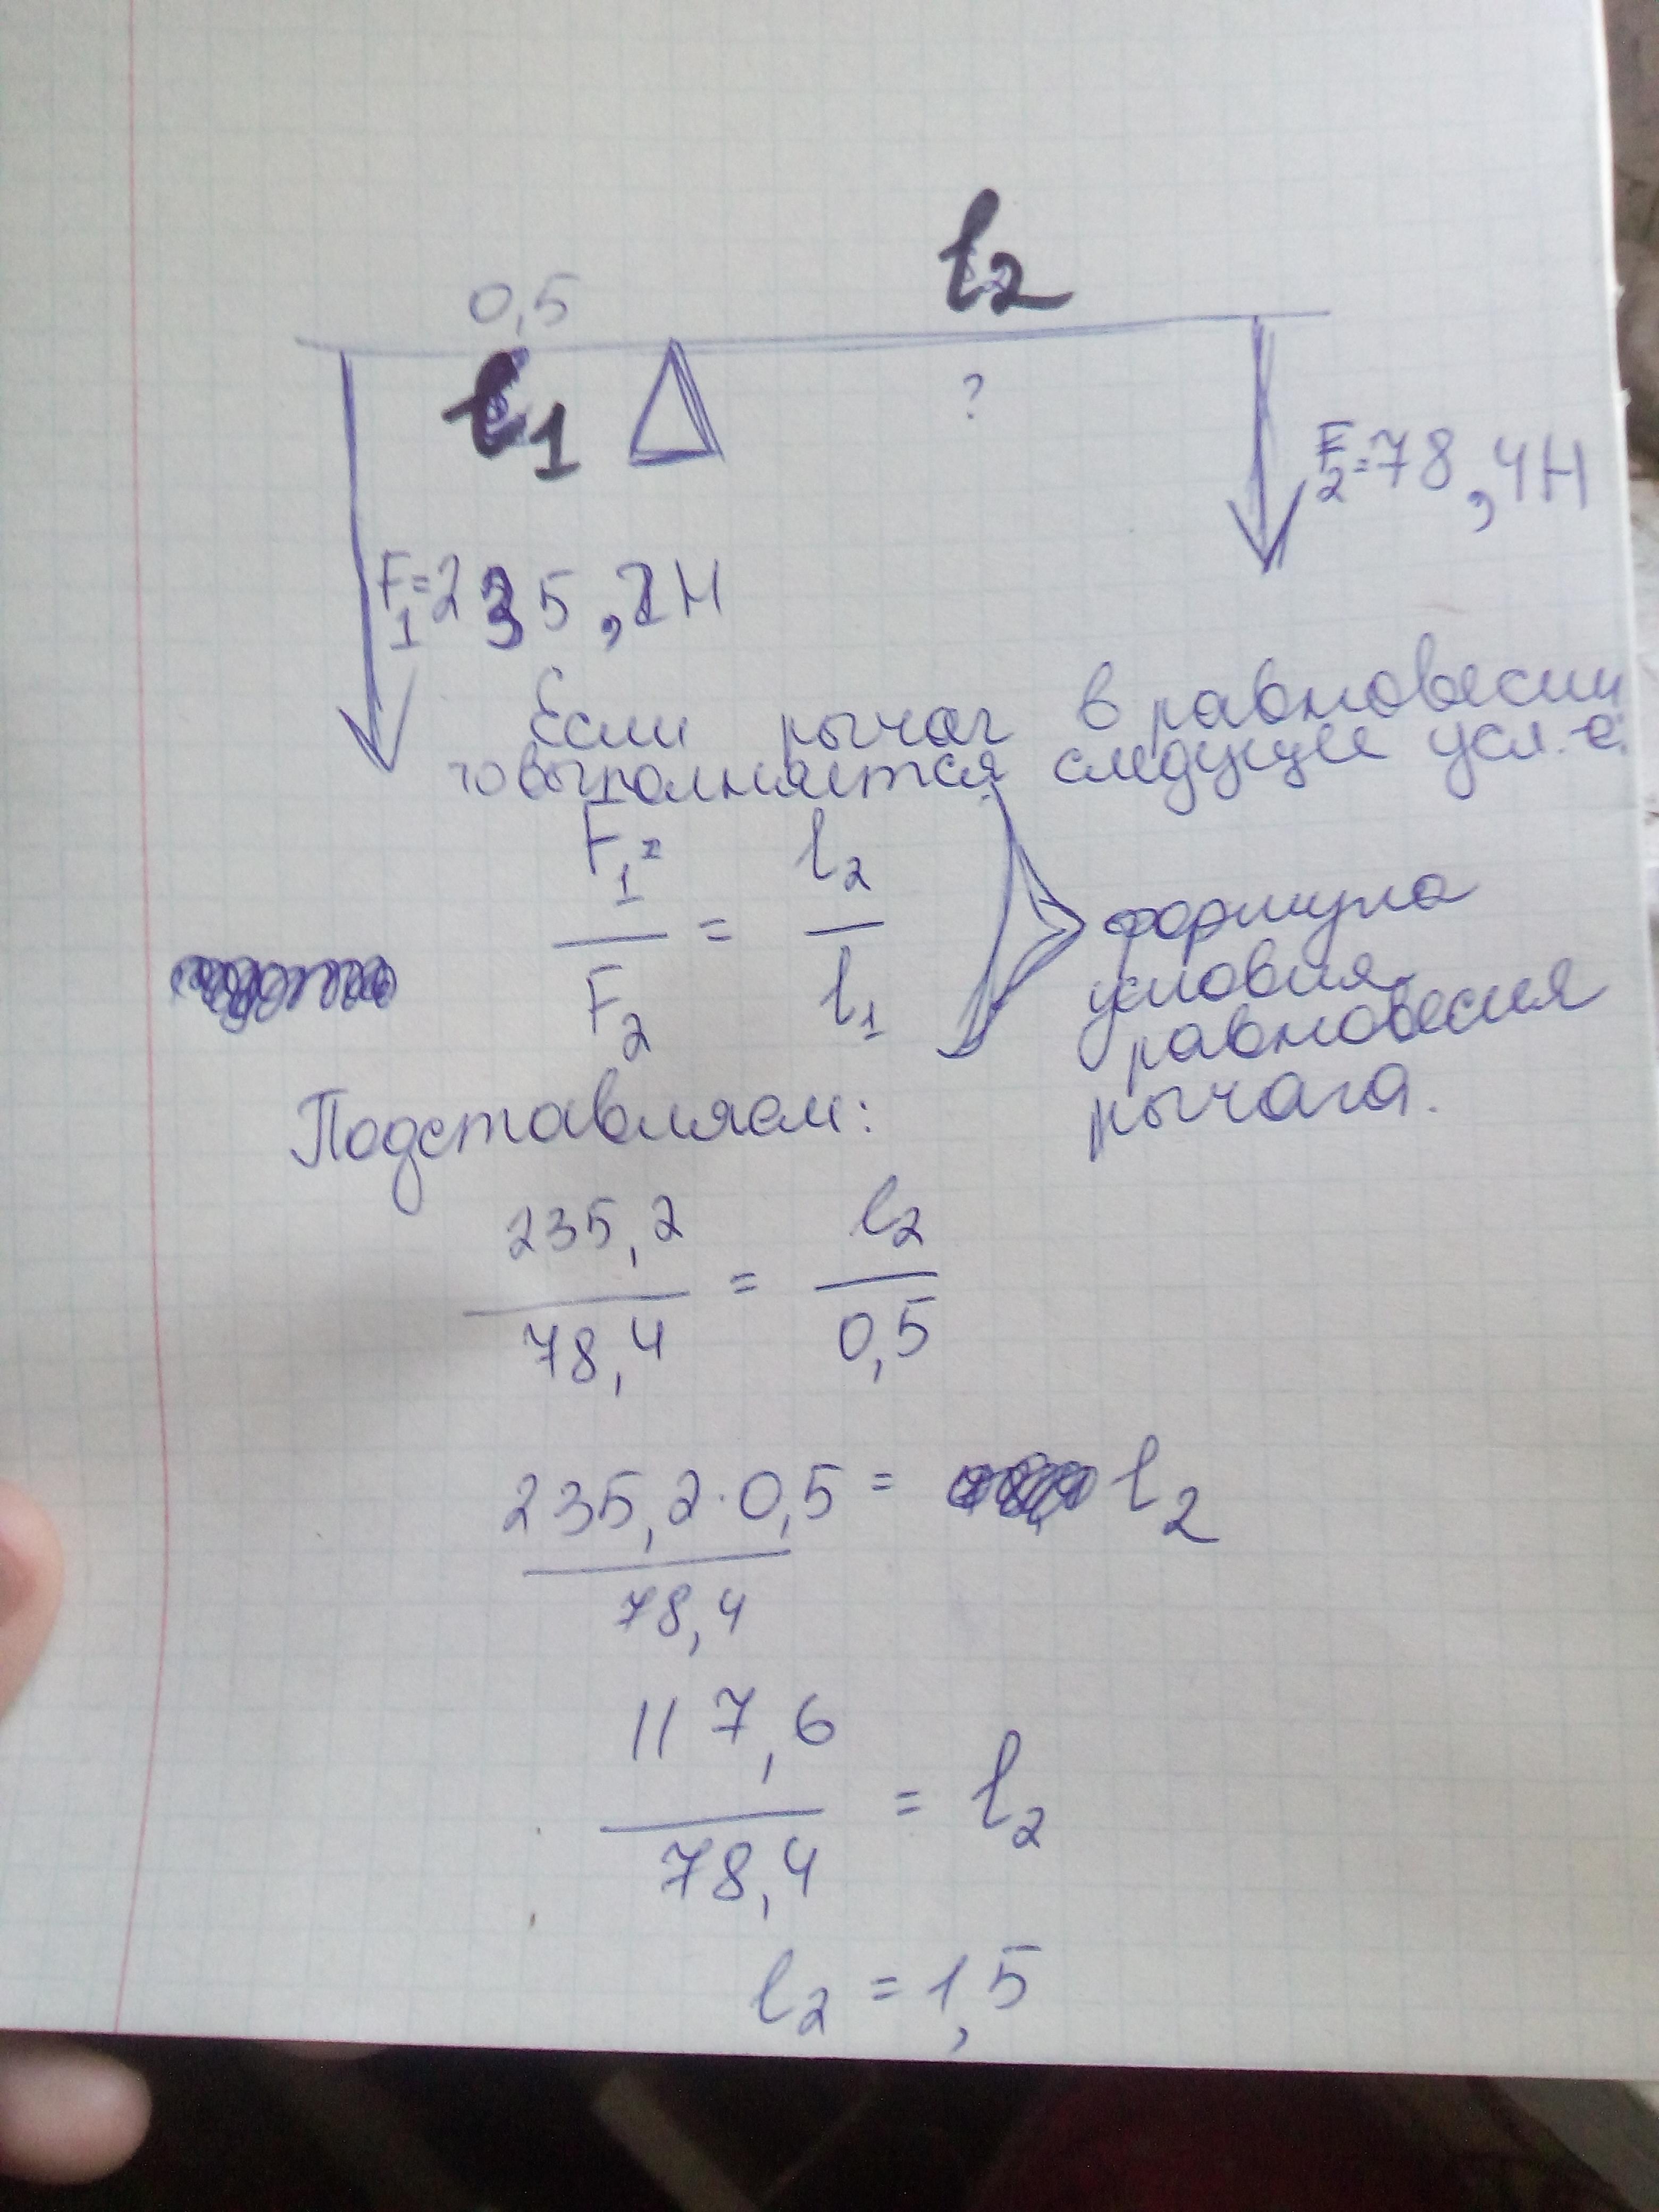 l2
0,5
l1
?
F2=78,4Н
F1=235,2Н
Если рычаг в равновесии
то выполняется следущее усл.-е:
F1 = l2
F2 l1
формула
условия
равновесия
рычага.
Подставляем:
235,2 = l2
78,4 0,5
235,2·0,5 = l2
78,4
117,6 = l2
78,4
l2 = 1,5